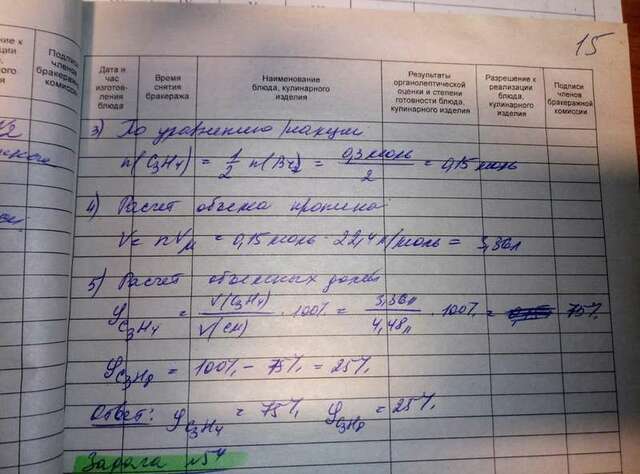 15
Подписи членов бракеражной комиссии
Дата и час изготовления блюда
Время снятия бракеража
Наименование блюда, кулинарного изделия
Результаты органолептической оценки и степени готовности блюда, кулинарного изделия
Разрешение к реализации блюда, кулинарного изделия
Подписи членов бракеражной комиссии
3) По уравнению реакции
n(C₃H₄) = 1/2 n(Br₂) = 0,3 моль/2 = 0,15 моль
4) Расчет объема пропина
V = nVм = 0,15 моль · 22,4 л/моль = 3,36 л
5) Расчет объемных долей
φ C₃H₄ = V(C₃H₄)/V(см) · 100% = 3,36л/4,48л · 100% = 75%
φ C₃H₈ = 100% - 75% = 25%
Ответ: φ C₃H₄ = 75% φ C₃H₈ = 25%
Задача №54